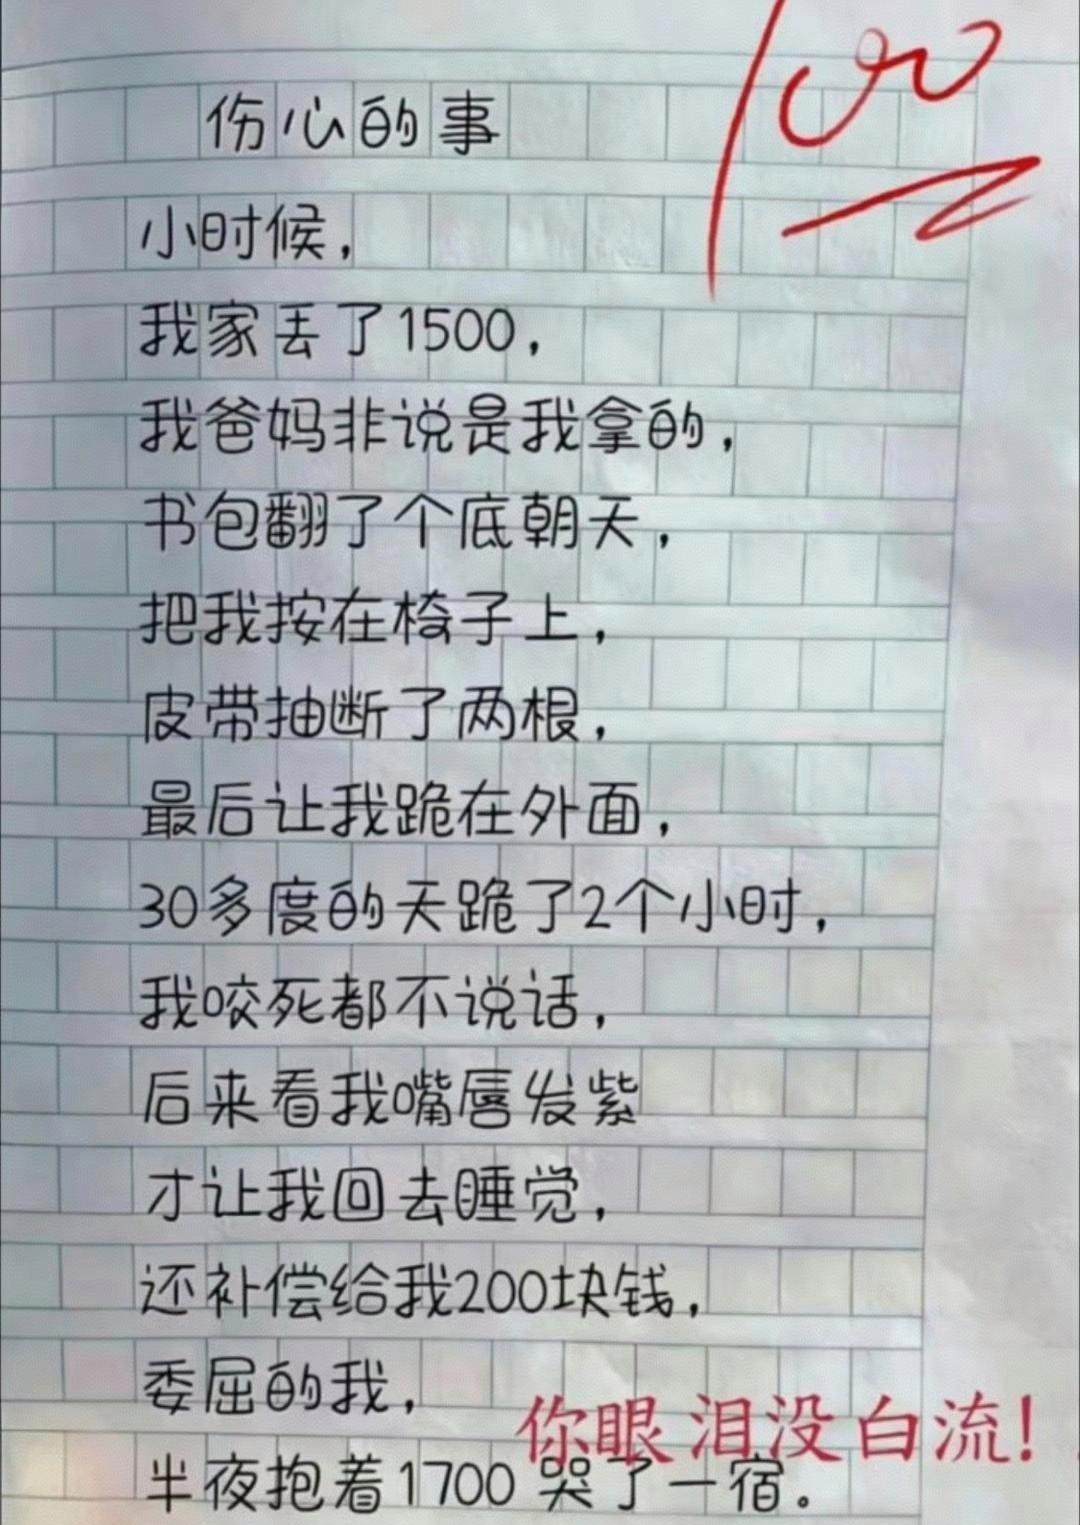 100
伤心的事
小时候，
我家丢了1500，
我爸妈非说是我拿的，
书包翻了个底朝天，
把我按在椅子上，
皮带抽断了两根，
最后让我跪在外面，
30多度的天跪了2个小时，
我咬死都不说话，
后来看我嘴唇发紫
才让我回去睡觉，
还补偿给我200块钱，
委屈的我，
你眼泪没白流！
半夜抱着1700哭了一宿。